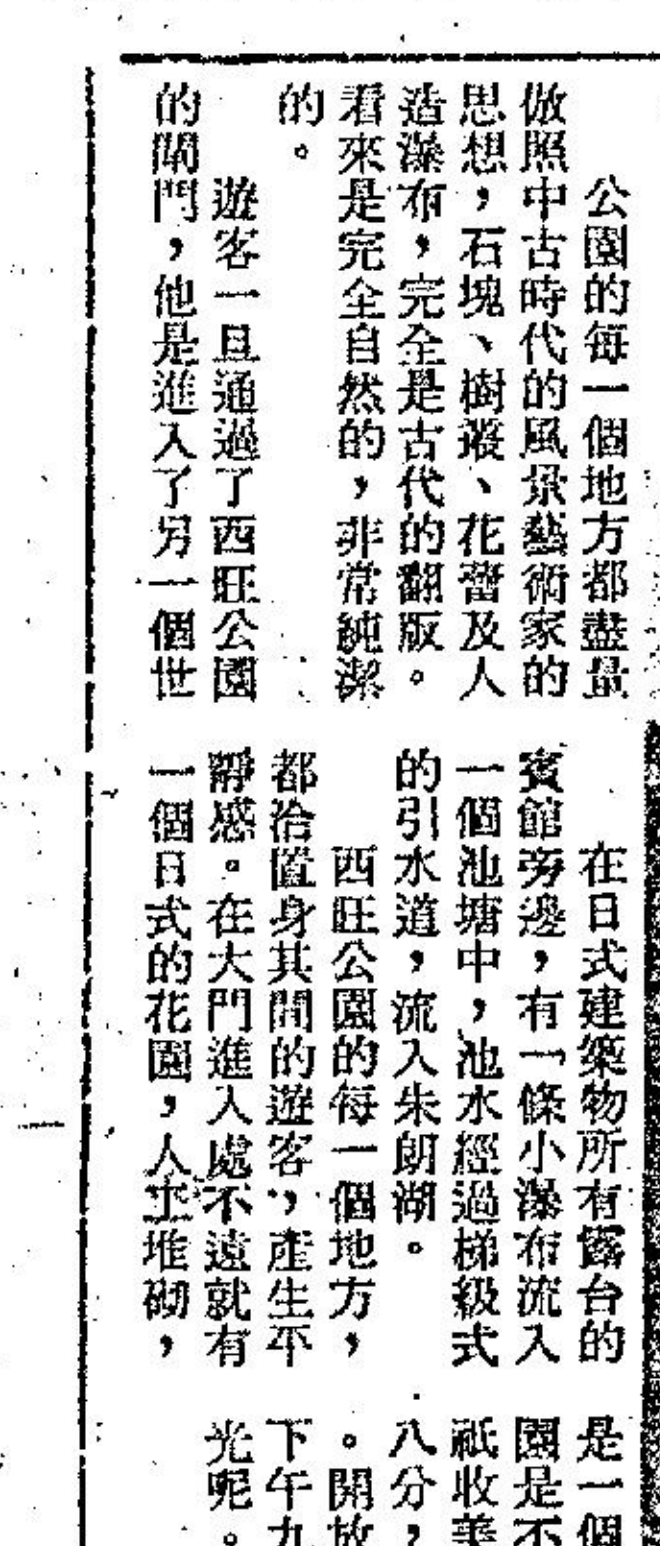 公園的每一個地方都盡量
倣照中古時代的風景藝術家的
思想，石塊、樹叢、花蕾及人
造瀑布，完全是古代的翻版。
看來是完全自然的，非常純潔
的。
遊客一旦通過了西旺公園
的閘門，他是進入了另一個世
在日式建築物所有露台的
賓館旁邊，有一條小瀑布流入
一個池塘中，池水經過梯級式
的引水道，流入朱朗湖。
西旺公園的每一個地方，
都洽置身其間的遊客，產生平
靜感。在大門進入處不遠就有
一個日式的花園，人工堆砌，
是一個
園是不
祇收美
八分，
。開放
下午九
光呢。